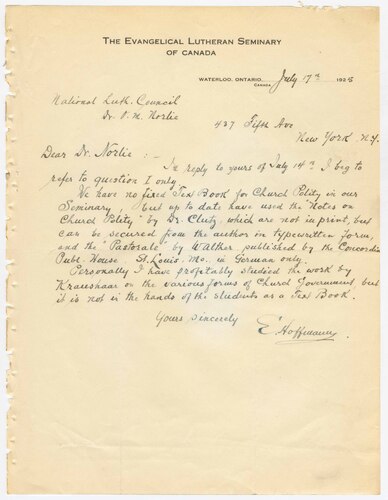 THE EVANGELICAL LUTHERAN SEMINARY
OF CANADA
WATERLOO, ONTARIO, July 17th 1925
CANADA
National Luth. Council
Dr. O. M. Norlie
437 Fifth Ave
New York N.Y.
Dear Dr. Norlie : -
In reply to yours of July 14th I beg to
refer to question I only.
We have no fixed Text Book for Church Polity in our
Seminary, but up to date have used the "Notes on
Church Polity" by Dr. Clutz, which are not in print, but
can be secured from the author in typewritten form,
and the "Pastorale" by Walther published by the Concordia
Publ. House St. Louis. Mo. in German only.
Personally I have profitably studied the work by
Kraushaar on the various forms of Church Government but
it is not in the hands of the students as a Text Book.
Yours sincerely
E. Hoffmann